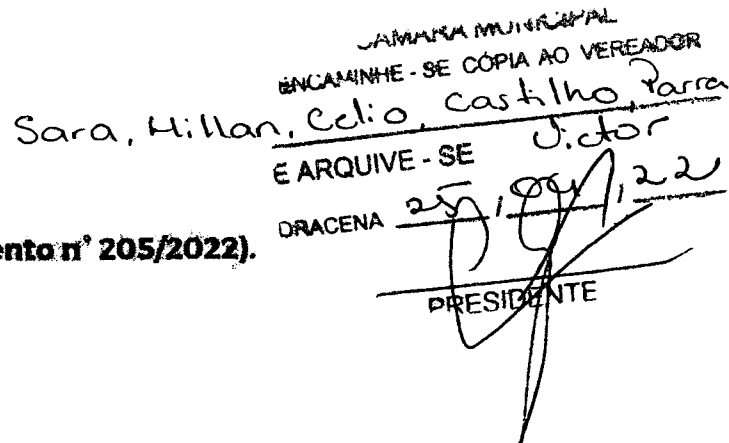 CAMARA MUNICIPAL
ENCAMINHE - SE CÓPIA AO VEREADOR
Sara, Millan, Celio, Castilho, Parra
Victor
E ARQUIVE - SE
DRACENA 25, 04, 22
ento n° 205/2022).
PRESIDENTE